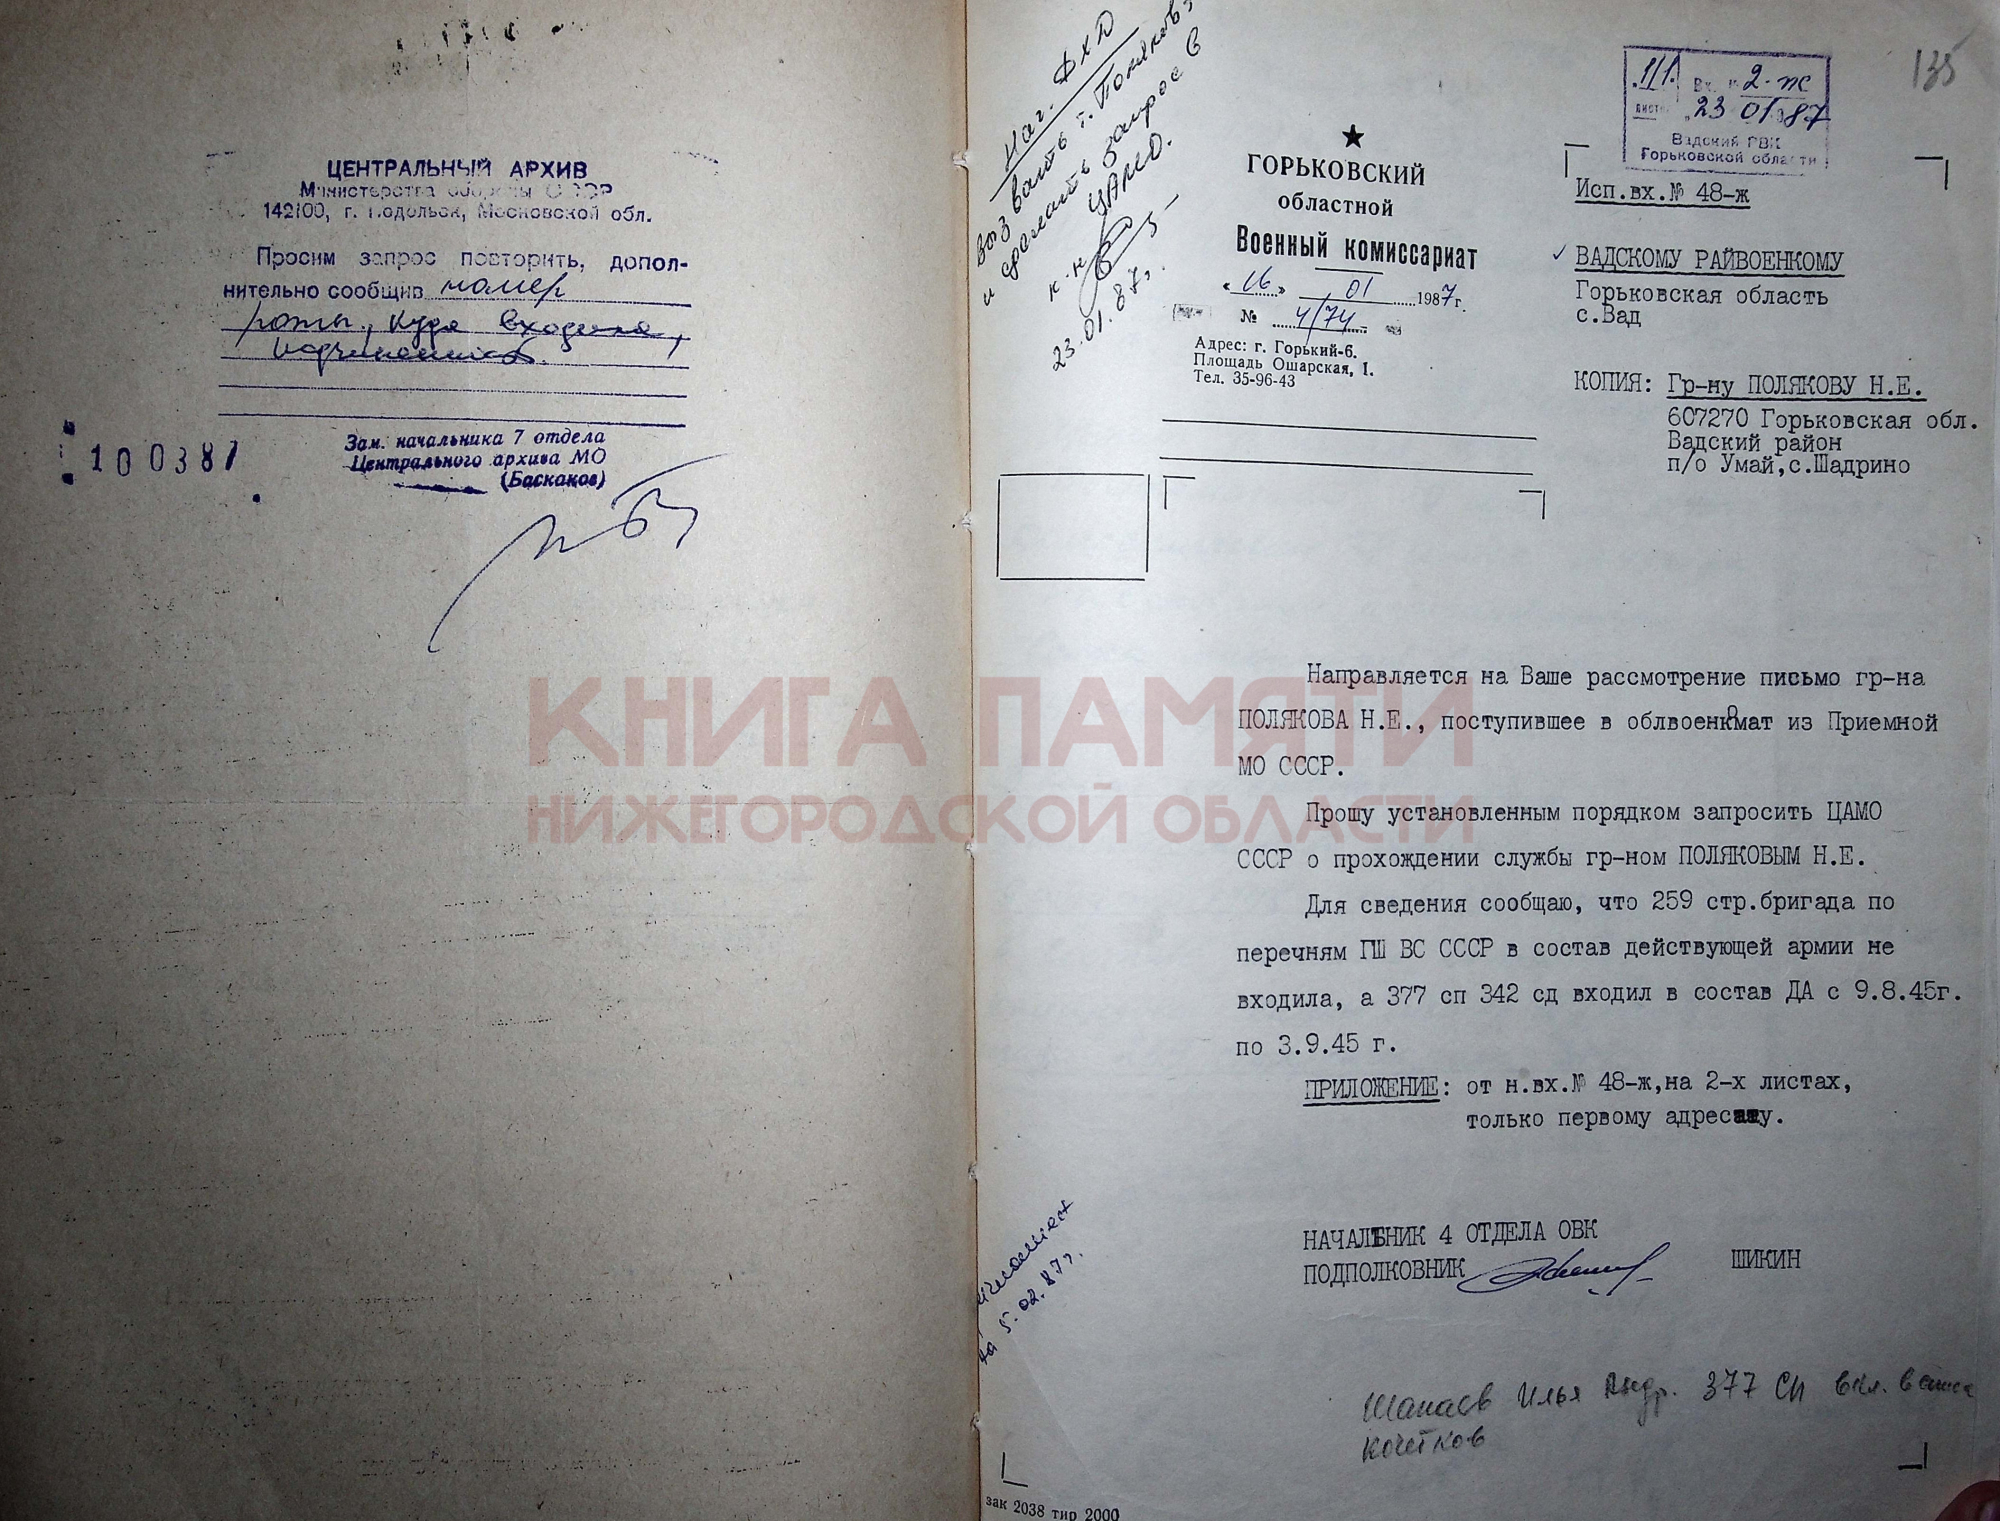 ЦЕНТРАЛЬНЫЙ АРХИВ
Министерства обороны СССР
142100, г. Подольск, Московской обл.
Просим запрос повторить, допол-
нительно сообщив номер
роты, куда входила,
подчиненность.
100387
Зам. начальника 7 отдела
Центрального архива МО
(Баскаков)
Нач. ФХД
вызвать т. Полякова
и сделать запрос в
ЦАМО.
к-н
23.01.87г.
135
1/1. Вх. № 2-ж
листо 23 01 1987
Вадский РВК
Горьковской области
ГОРЬКОВСКИЙ
областной
Военный комиссариат
« 16 » 01 1987 г.
№ 4/74
Адрес: г. Горький-6.
Площадь Ошарская, 1.
Тел. 35-96-43
Исп.вх.№ 48-ж
ВАДСКОМУ РАЙВОЕНКОМУ
Горьковская область
с.Вад
КОПИЯ: Гр-ну ПОЛЯКОВУ Н.Е.
607270 Горьковская обл.
Вадский район
п/о Умай,с.Шадрино
Направляется на Ваше рассмотрение письмо гр-на
ПОЛЯКОВА Н.Е., поступившее в облвоенкомат из Приемной
МО СССР.
Прошу установленным порядком запросить ЦАМО
СССР о прохождении службы гр-ном ПОЛЯКОВЫМ Н.Е.
Для сведения сообщаю, что 259 стр.бригада по
перечням ГШ ВС СССР в состав действующей армии не
входила, а 377 сп 342 сд входил в состав ДА с 9.8.45г.
по 3.9.45 г.
ПРИЛОЖЕНИЕ: от н.вх.№ 48-ж,на 2-х листах,
только первому адресату.
НАЧАЛЬНИК 4 ОТДЕЛА ОВК
ПОДПОЛКОВНИК ШИКИН
на 5.02.87г.
Шапаев Илья Андр. 377 СП вкл. в
Кочетков
зак 2038 тир 2000
КНИГА ПАМЯТИ
НИЖЕГОРОДСКОЙ ОБЛАСТИ